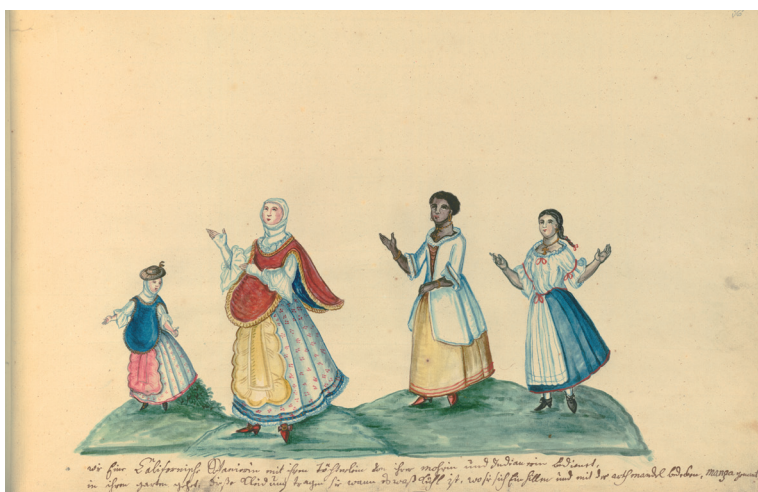 wie Eine Californische Spanierin mit ihrem Töchterlein von ihrer mohrin und Indianerin bedienet,
in ihren garten gehet. Diße Kleidung tragen sie wann es waß kühl ist, wo sie sich Einhillen und mit der arth mandel bedeken, manga genant